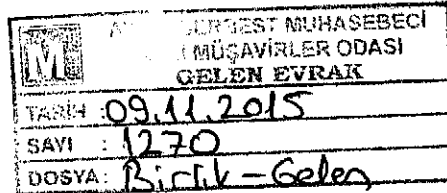 SERBEST MUHASEBECİ
MÜŞAVİRLER ODASI
GELEN EVRAK
TARİH : 09.11.2015
SAYI : 1270
DOSYA: Birlik - Gelen